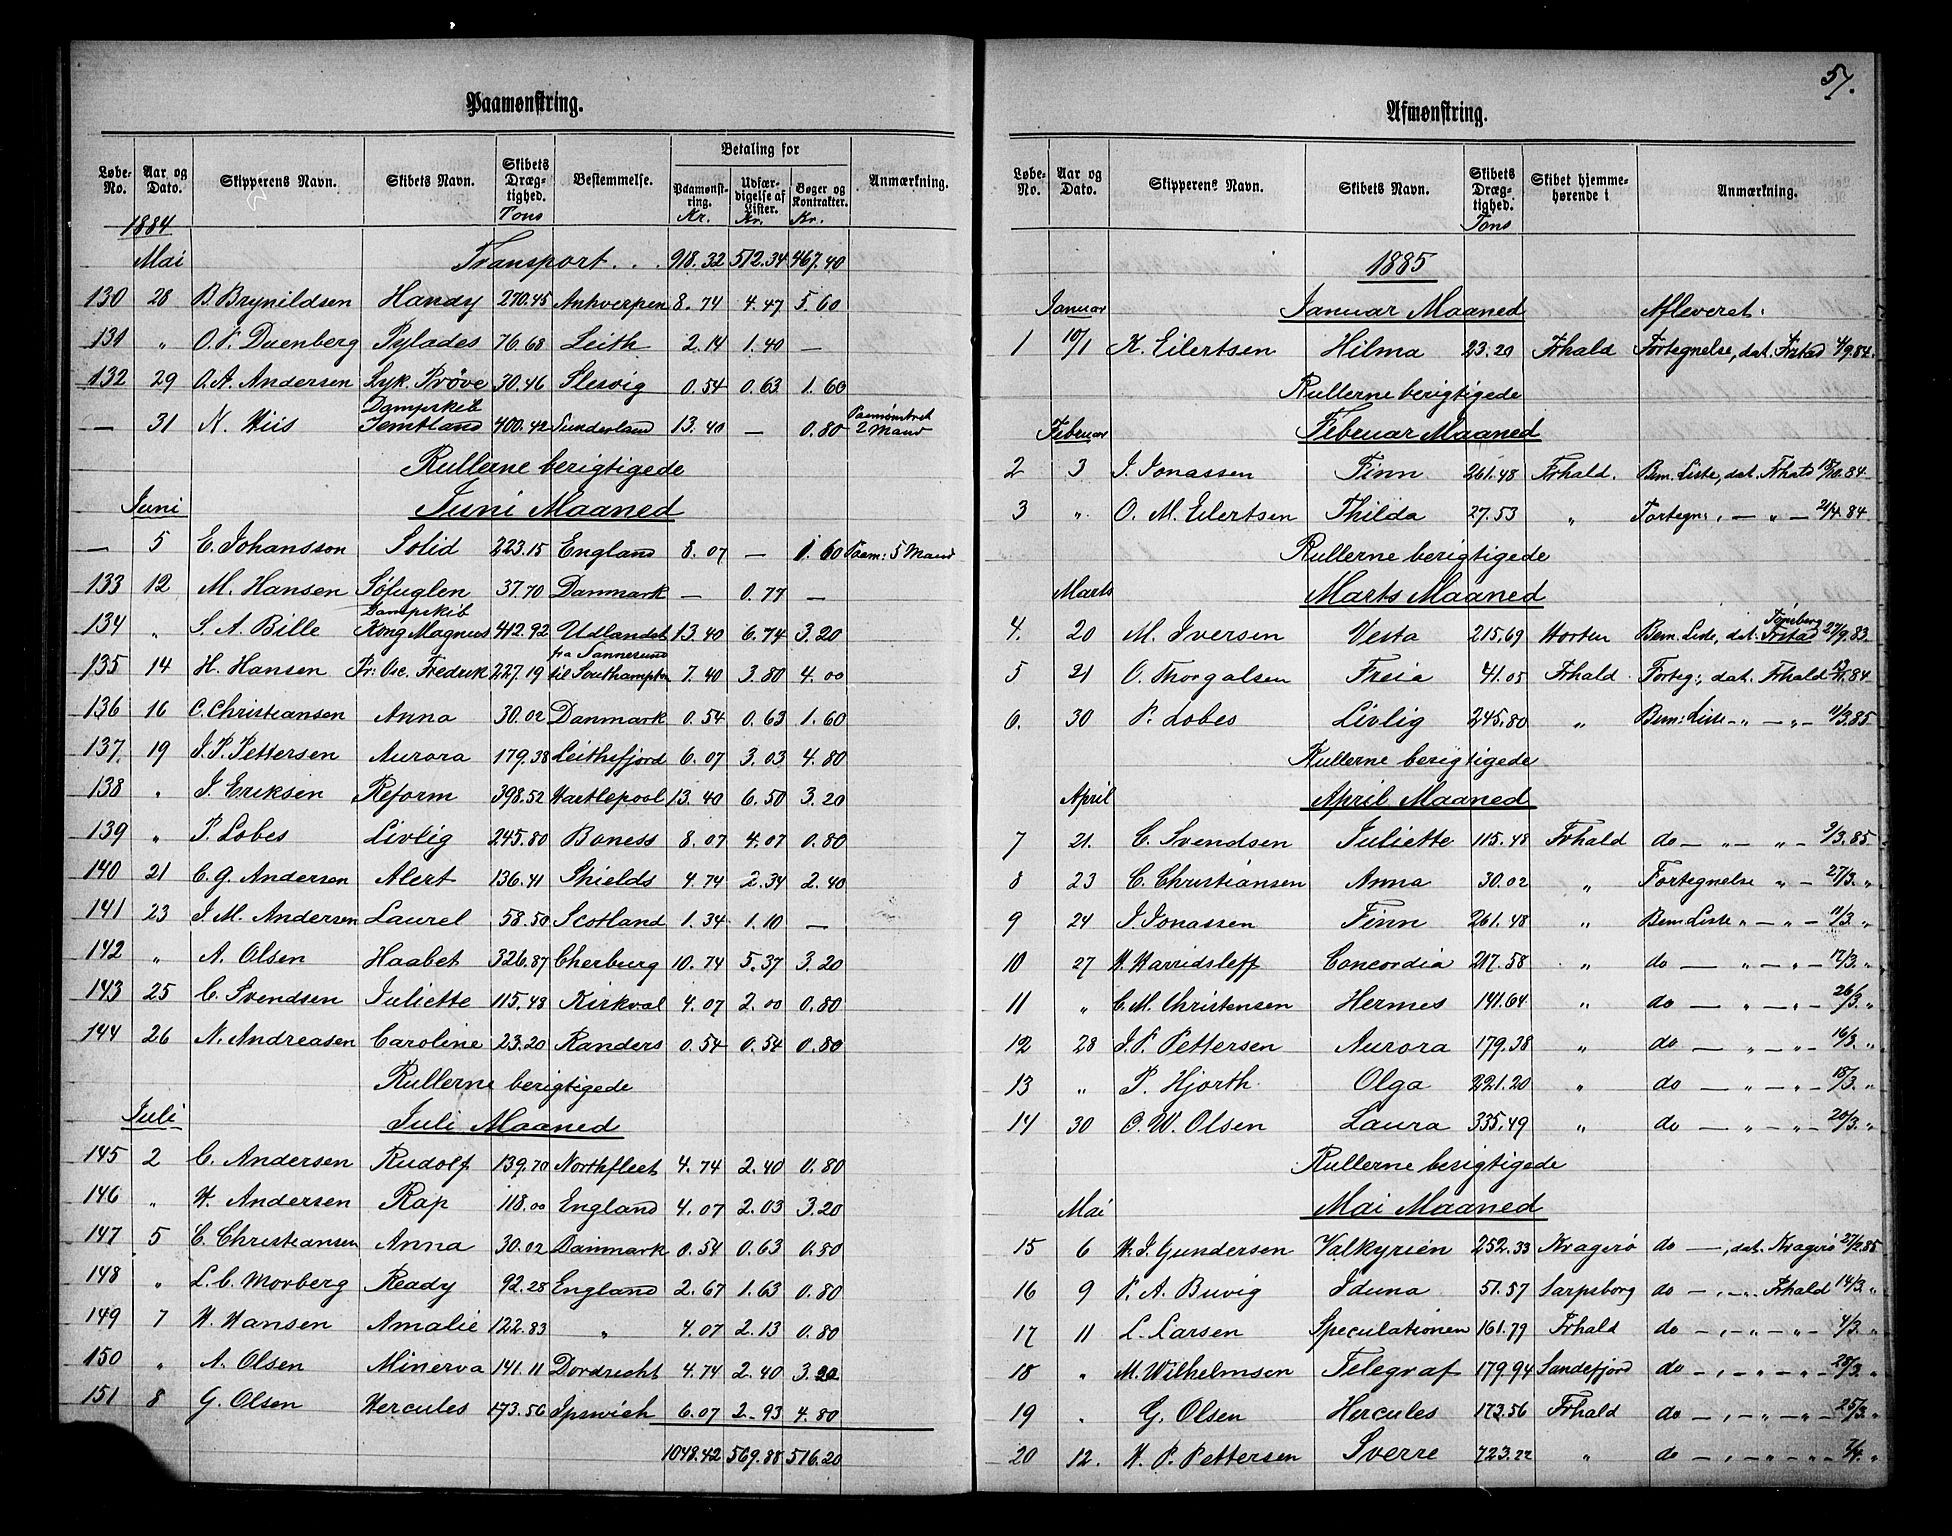 Paamønstring.
Løbe-No. | Aar og Dato. | Skipperens Navn. | Skibets Navn. | Skibets Dræg-tighed. Tons | Bestemmelse. | Betaling for | Paamønst-ring. Kr. | Udfær-digelse af Lister. Kr. | Bøger og Kontrakter. Kr. | Anmærkning.
1884
Mai Transport . . . 918.32 512.34 467.40
130 28 B. Brynildsen Handy 270.45 Anhverpen 8.74 4.47 5.60
131 " O. P. Duenberg Pylades 76.68 Leith 2.14 1.40 —
132 29 O. A. Andersen Lyk. Prøve 30.46 Slesvig 0.54 0.63 1.60
— 31 N. Hiis Dampskib Jemtland 400.42 Sunderland 13.40 — 0.80 Paamønstret 2 Mand
Rullerne berigtigede
Juni Juni Maaned
— 5 E. Johansson Solid 223.15 England 8.07 — 1.60 Paam: 5 Mand
133 12 M. Hansen Søfuglen 37.70 Danmark — 0.77 —
134 " S. A. Bille Dampskib Kong Magnus 412.92 Udlandet 13.40 6.74 3.20
135 14 H. Hansen Pr: Osc. Fredrik 227.19 fra Sannesund til Southampton 7.40 3.80 4.00
136 16 C. Christiansen Anna 30.02 Danmark 0.54 0.63 1.60
137. 19 J. P. Pettersen Aurora 179.38 Leithsfjord 6.07 3.03 4.80
138 " J. Eriksen Reform 398.52 Hartlepool 13.40 6.50 3.20
139 " P. Lobes Livlig 245.80 Boness 8.07 4.07 0.80
140 21 C. G. Andersen Alert 136.41 Shields 4.74 2.34 2.40
141 23 J. M. Andersen Laurel 58.50 Scotland 1.34 1.10 —
142 " A. Olsen Haabet 326.87 Cherburg 10.74 5.37 3.20
143 25 C. Svendsen Juliette 115.48 Kirkval 4.07 2.00 0.80
144 26 N. Andreasen Caroline 23.20 Randers 0.54 0.54 0.80
Rullerne berigtigede
Juli Juli Maaned
145 2 C. Andersen Rudolf 139.70 Northfleet 4.74 2.40 0.80
146 " H. Andersen Rap 118.00 England 4.07 2.03 3.20
147 5 C. Christiansen Anna 30.02 Danmark 0.54 0.63 0.80
148 " L. C. Morberg Ready 92.28 England 2.67 1.63 0.80
149 7 H. Hansen Amalie 122.83 " 4.07 2.13 0.80
150 " A. Olsen Minerva 141.11 Dordrecht 4.74 2.40 3.20
151 8 G. Olsen Hercules 173.56 Ipswich 6.07 2.93 4.80
1048.42 569.88 516.20
57.
Afmønstring.
Løbe-No. | Aar og Dato. | Skipperens Navn. | Skibets Navn. | Skibets Dræg-tighed. Tons | Skibet hjemme-hørende i | Anmærkning.
1885
Januar Januar Maaned Afleveret.
1 10/1 K. Eilertsen Hilma 23.20 Frhald Fortegnelse, dat. Frstad 4/9.84.
Rullerne berigtigede
Februar Februar Maaned
2 3 J. Jonassen Finn 261.48 Frhald. Bem. Liste, dat. Frhald 18/10.84
3 " O. M. Eilertsen Thilda 27.53 " Fortegn: , — " — 21/4.84
Rullerne berigtigede
Marts Marts Maaned
4. 20 M. Iversen Vesta 215.69 Horten Bem. Liste, dat. Tønsberg Frstad 27/9.83.
5 21 O. Thorgalsen Freia 41.05 Frhald Forteg:, dat. Frhald 84.
6. 30 P. Lobes Livlig 245.80 " Bem: Liste — " — " — 11/3.85
Rullerne berigtigede
April April Maaned
7 21. C. Svendsen Juliette 115.48 Frhald do — " — " — 9/3.85
8 23 C. Christiansen Anna 30.02 " Fortegnelse " — 27/3. "
9 24 J. Jonassen Finn 261.48 " Bem. Liste " — " — 11/3. "
10 27 H. Harridsleff Concordia 217.58 " do — " — " — 17/3. "
11 " C. M. Christensen Hermes 141.64 " do — " — " — 26/3. "
12 28 J. P. Pettersen Aurora 179.38 " do — " — " — 16/3. "
13 " P. Hjorth. Olga 221.20 " do — " — " — 18/3. "
14 30 O. W. Olsen Laura 335.49 " do — " — " — 20/3. "
Rullerne berigtigede
Mai Mai Maaned
15 6 H. J. Gundersen Valkyrien 252.33 Kragerø do —, dat. Kragerø 27/2.85
16 9 P. A. Buvig Iduna 51.57 Sarpsborg do — , — " Frhald 14/3. "
17 11 L. Larsen Speculationen 161.79 Frhald do — , — " — " — 4/3. "
18 " M. Wilhelmsen Telegraf 179.94 Sandefjord do — , — " — " — 28/3. "
19 " G. Olsen Hercules 173.56 Frhald do — , — " — " — 25/3. "
20 12. H. P. Pettersen Sverre 723.22 " do — , — " — " — 7/4. "